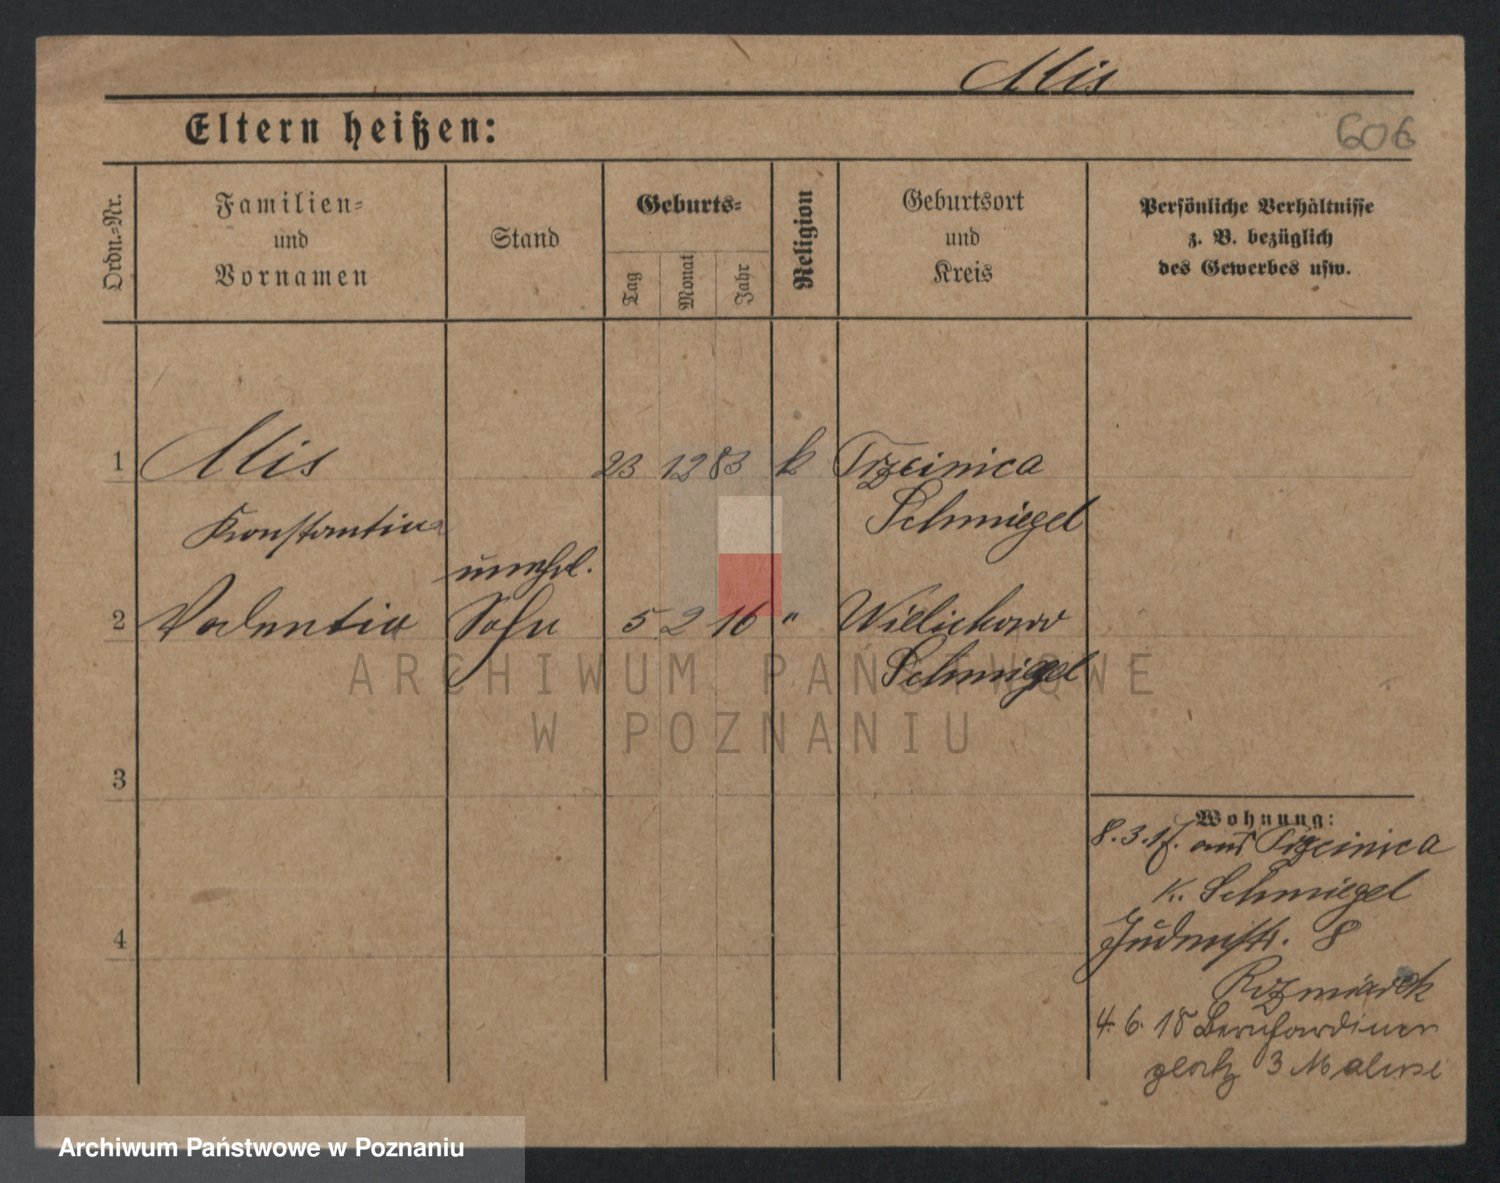 Mis
Eltern heißen:
606
Ordn.-Nr.
Familien-
und
Vornamen
Stand
Geburts-
Tag
Monat
Jahr
Religion
Geburtsort
und
Kreis
Persönliche Verhältnisse
z. B. bezüglich
des Gewerbes usw.
1 Mis 23 12 83 k Trzcinica
Konstantina Schmiegel
unehel.
2 Valentin Sohn 5 2 16 " Willichowo
Schmiegel
ARCHIWUM PAŃSTWOWE
W POZNANIU
3
Wohnung:
8.3.17. aus Trzcinica
K. Schmiegel
4
Judenstr. 8
4.6.18 Bernhardiner
platz 3
Archiwum Państwowe w Poznaniu